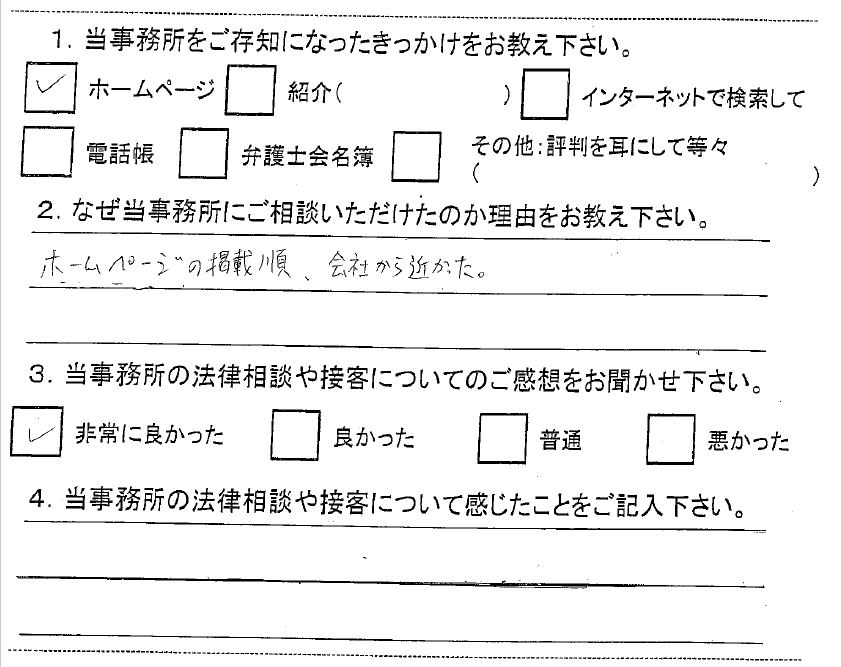 1. 当事務所をご存知になったきっかけをお教え下さい。
✓ ホームページ □ 紹介( ) □ インターネットで検索して
□ 電話帳 □ 弁護士会名簿 □ その他:評判を耳にして等々
( )
2. なぜ当事務所にご相談いただけたのか理由をお教え下さい。
ホームページの掲載順、会社から近かった。
3. 当事務所の法律相談や接客についてのご感想をお聞かせ下さい。
✓ 非常に良かった □ 良かった □ 普通 □ 悪かった
4. 当事務所の法律相談や接客について感じたことをご記入下さい。